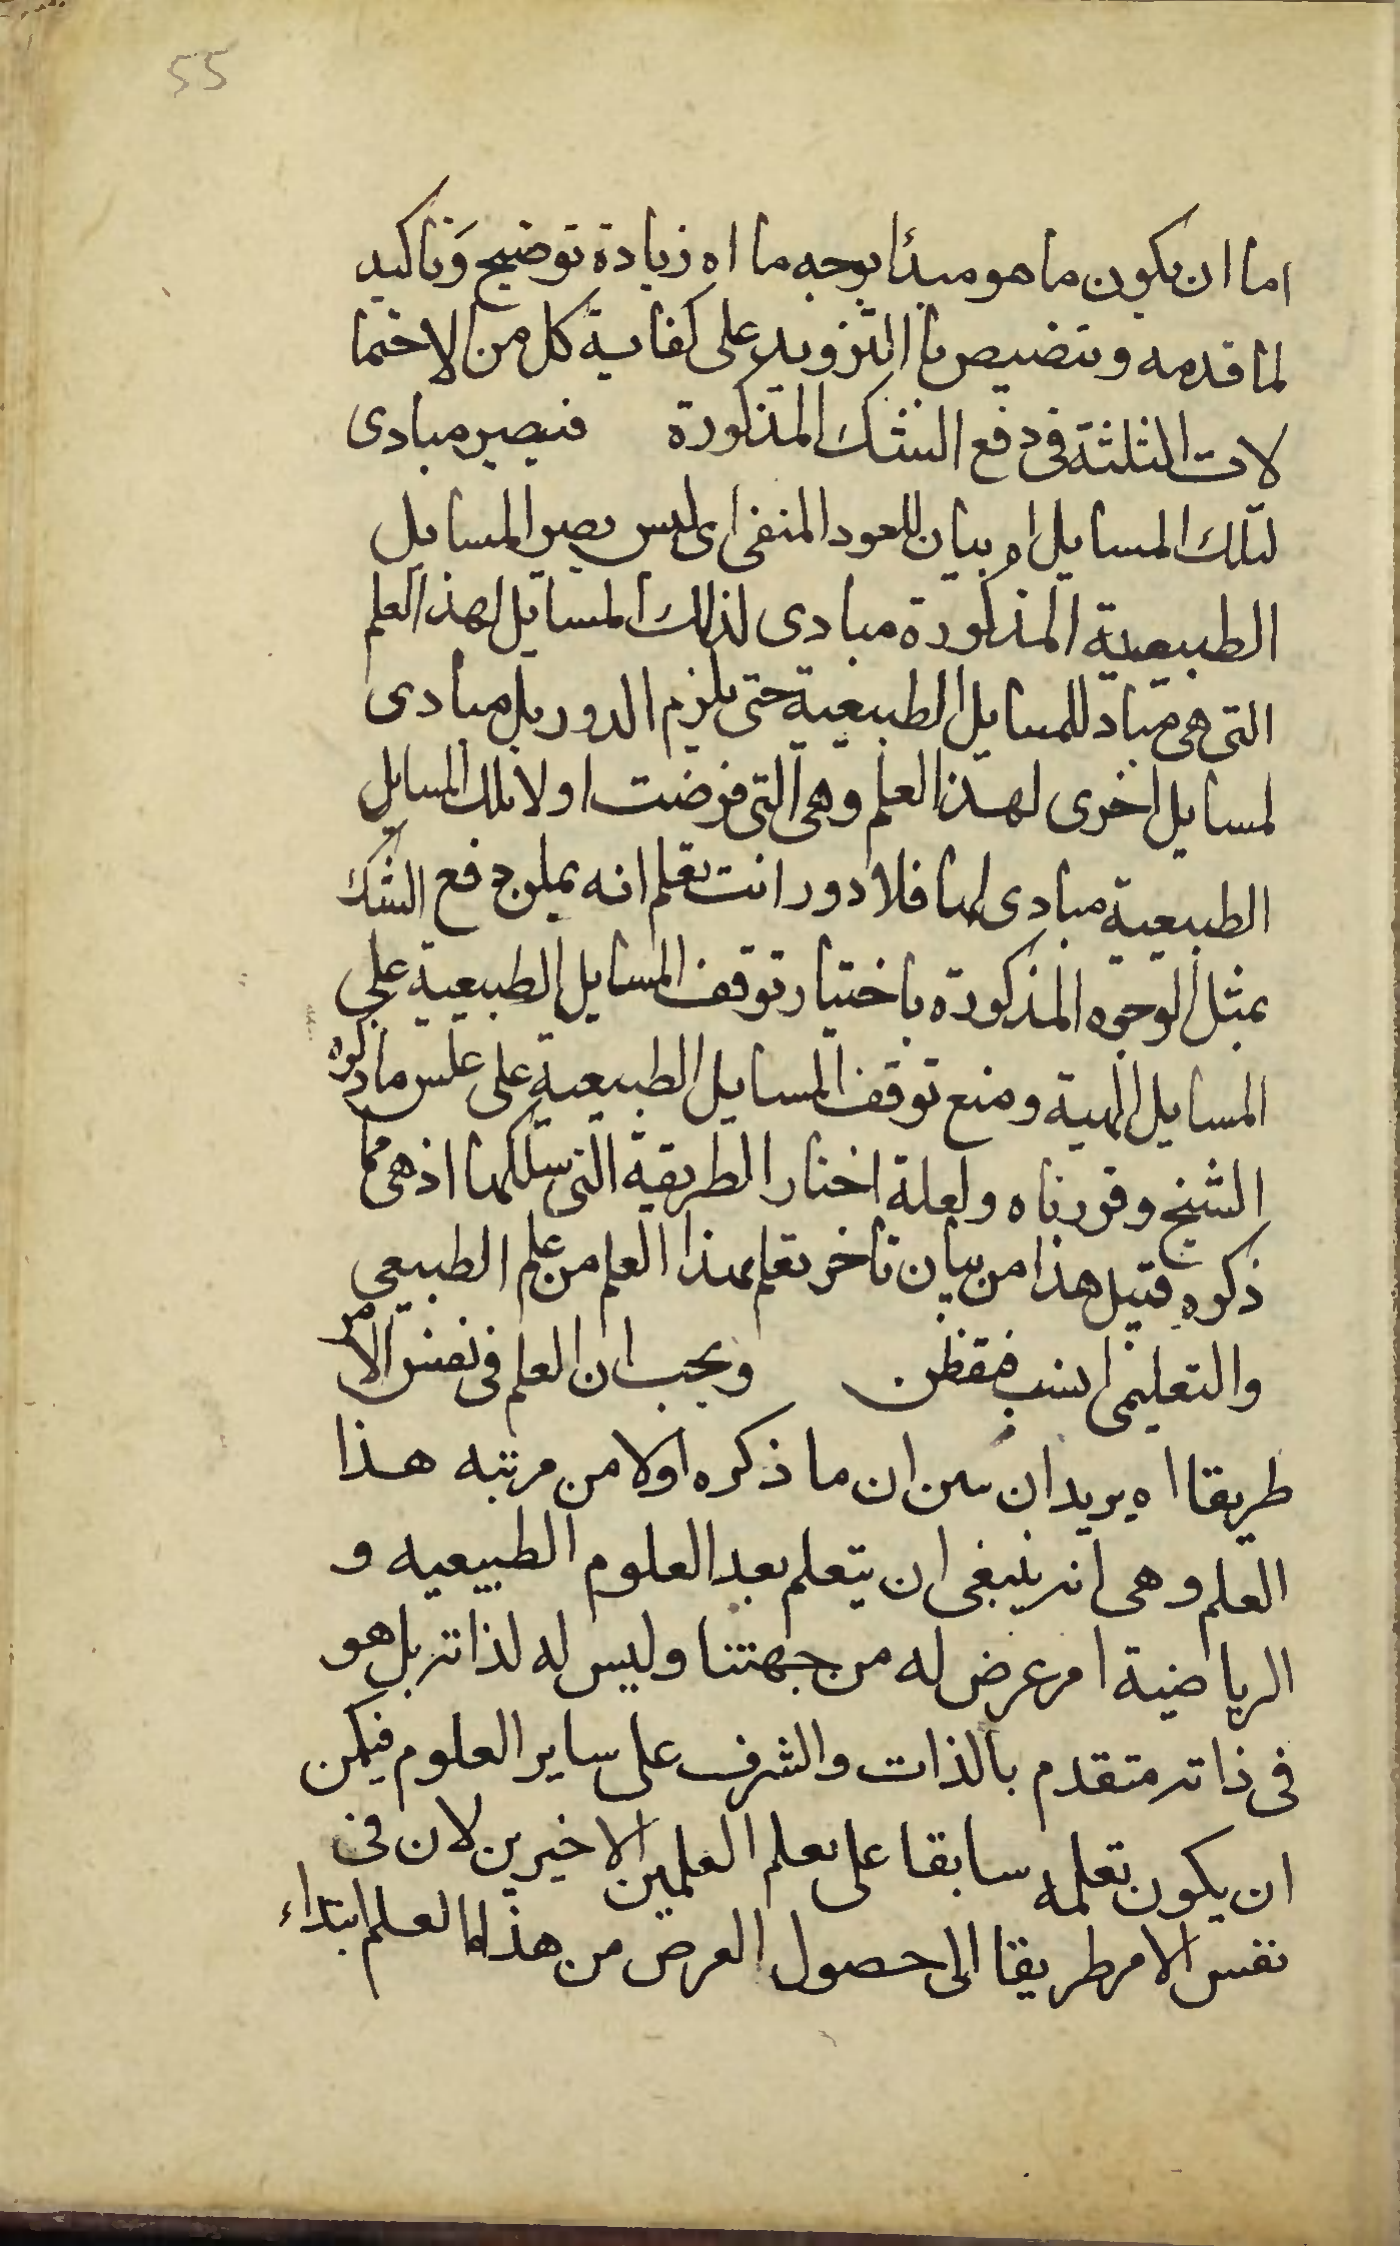 55
اما ان يكون ما هو مبدأ بوجه ما اه زيادة توضيح وتاكيد
لما قدمه وتنصيص بالترديد على كفاية كل من الاحتما
لات الثلثة فى دفع الشك المذكورة فيصير مبادى
لتلك المسايل اه بيان للعود المنفى اى ليس يصير المسايل
الطبيعية المذكورة مبادى لذلك المسايل لهذ العلم
التى هى مباد للمسايل الطبيعية حتى يلزم الدور بل مبادى
لمسايل اخرى لهذا العلم وهى التى فرضت اولا تلك المسايل
الطبيعية مبادى لها فلا دور انت تعلم انه يمكن دفع الشك
بمثل الوجوه المذكورة باختيار توقف المسايل الطبيعية على
المسايل الهية ومنع توقف المسايل الطبيعية على عكس ما ذكره
الشيخ وقررناه ولعلة اختار الطريقة التى سلكها اذ هى مما
ذكره قبيل هذا من بيان تاخر تعلم هذا العلم من علم الطبيعى
والتعليمى انسب فتفطن ويجب ان العلم فى نفس الامر
طريقا اه يريد ان يبين ان ما ذكره اولا من مرتبه هذا
العلم وهى انه ينبغى ان يتعلم بعد العلوم الطبيعيه و
الرياضية امر عرض له من جهتنا وليس له لذاته بل هو
فى ذاته متقدم بالذات والشرف على ساير العلوم فيمكن
ان يكون تعلمه سابقا على تعلم العلمين الاخيرين لان فى
نفس الامر طريقا الى حصول الغرض من هذا العلم ابتداء